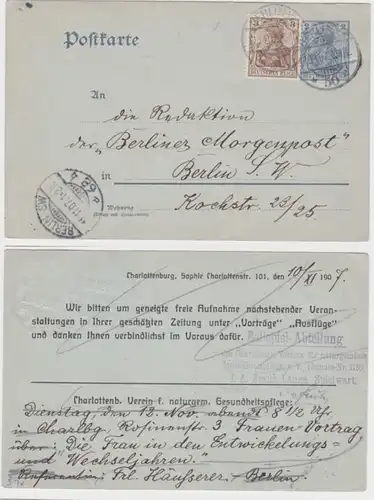 Postkarte
3
DEUTSCHES REICH
2
An
die Redaktion
der „Berliner Morgenpost"
in
Berlin S. W.
Kochstr. 23/25
Wohnung
BERLIN
SW
* 68 *
Charlottenburg, Sophie Charlottenstr. 101, den 10/XI 1907.
Wir bitten um geneigte freie Aufnahme nachstehender Veran-
staltungen in Ihrer geschätzten Zeitung unter „Vorträge" „Ausflüge"
und danken Ihnen verbindlichst im Voraus dafür.
Abteilung
Charlottenb. Verein f. naturgem. Gesundheitspflege:
Dienstag, den 12. Nov. abends 8 1/2 Uhr,
in Charlbg. Rosinenstr. 3 Frauen Vortrag
über: „Die Frau in den Entwickelungs-
und Wechseljahren."
Referentin: Frl. Häusserer - Berlin